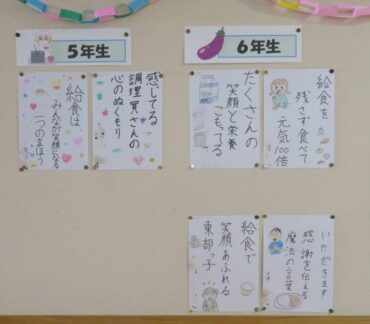 5年生
感じてる
調理員さんの
心のぬくもり
給食は
みんなが笑顔になる
一つのまほう
6年生
給食を
残さず食べて
元気100倍
たくさんの
笑顔と栄養
こもってる
いただきます
感謝を伝える
魔法の言葉
給食で
笑顔あふれる
東部っ子